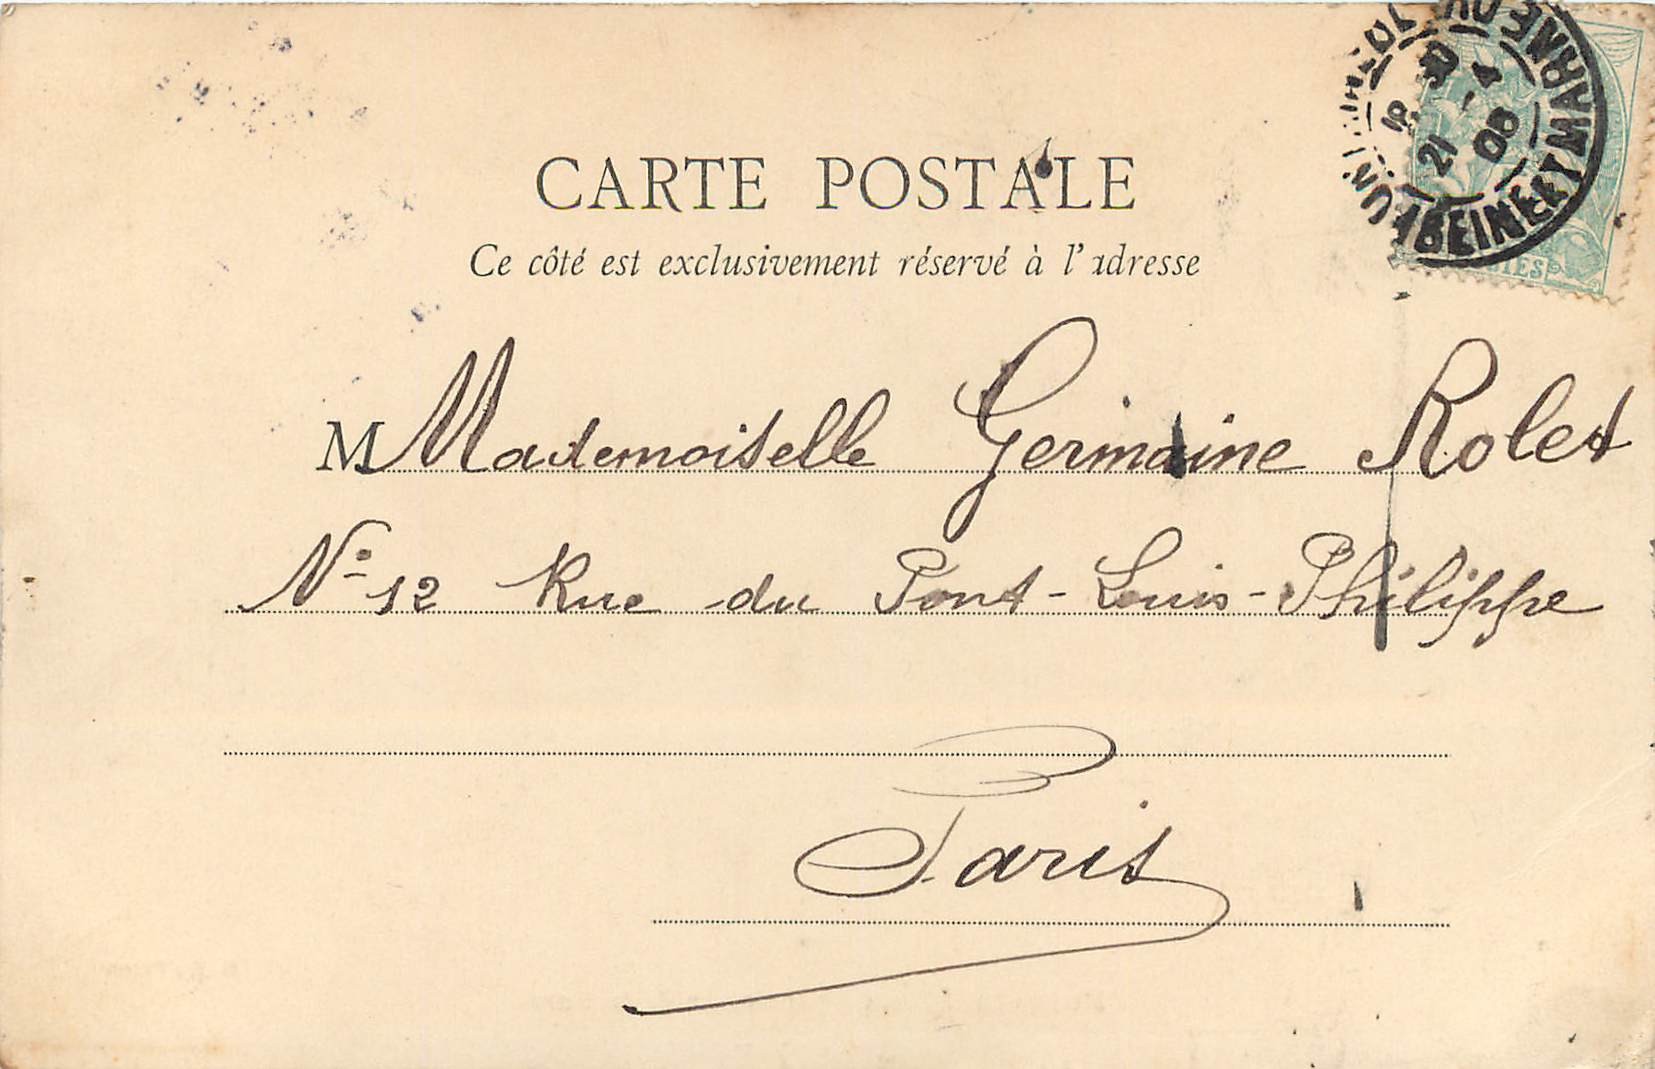 CARTE POSTALE
Ce côté est exclusivement réservé à l'adresse
M Mademoiselle Germaine Rolet
N° 12 Rue du Pont-Louis-Philippe
Paris
21 -4
08